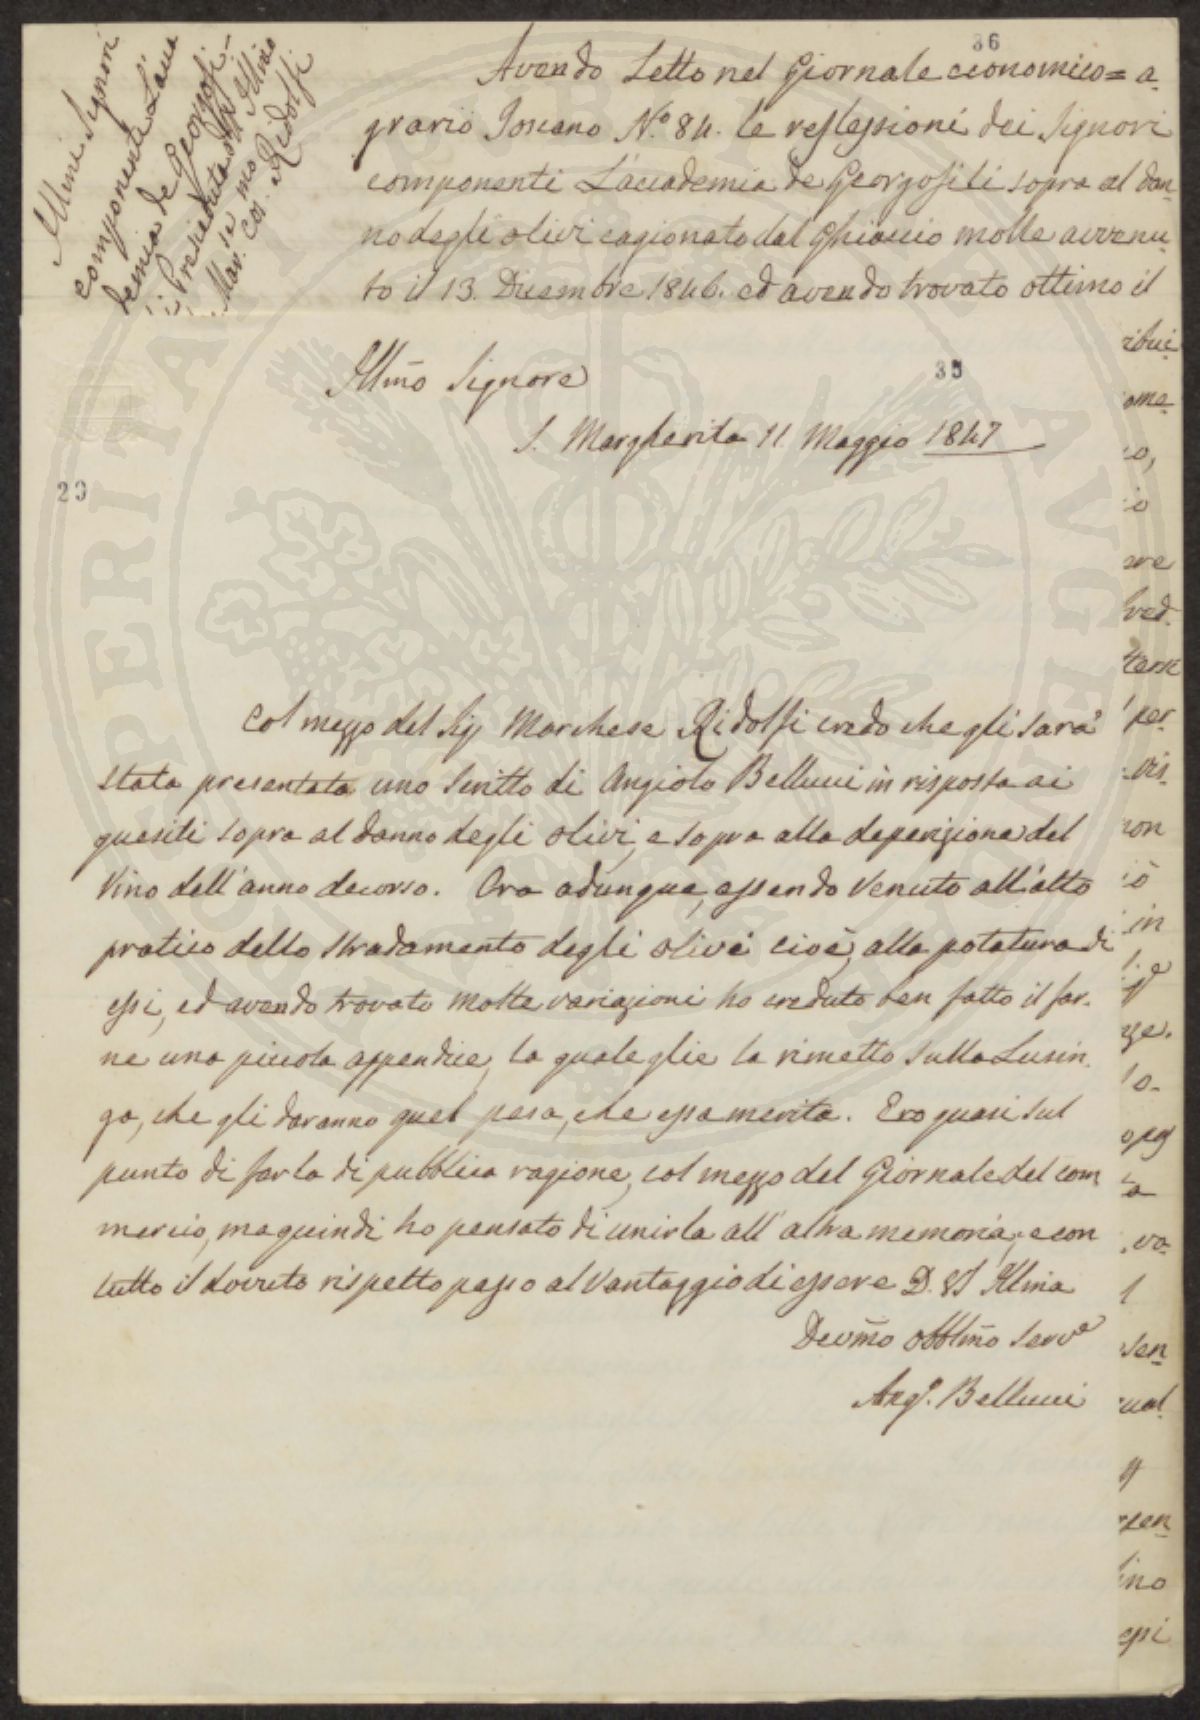 36
Illmi Signori
componenti L'acca
demia de Georgofi-
li Presieduta dall Illmo
Mar. se mo
Cos. Ridolfi
Avendo Letto nel Giornale economico= a
grario Toscano N.º 84. le reflessioni dei Signori
componenti L'accademia de Georgofili sopra al dan
no degli olivi cagionato dal Ghiaccio molle avvenu
to il 13. Dicembre 1846. ed avendo trovato ottimo il
Illmo Signore
35
S. Margherita 11 Maggio 1847
20
Col mezzo del Sig Marchese Ridolfi credo che gli sarà
stata presentata uno Scritto di Angiolo Bellucci in risposta ai
quesiti sopra al danno degli olivi, e sopra alla deperizione del
Vino dell'anno decorso. Ora adunque, essendo Venuto all'atto
pratico dello stradamento degli olivi cioè, alla potatura di
essi, ed avendo trovato Molte variazioni ho creduto ben fatto il far.
ne una piccola appendice, la quale glie la rimetto Sulla Lusin.
ga, che gli daranno quel peso, che essa merita. Ero quasi sul
punto di farla di pubblica ragione, col mezzo del Giornale del com
mercio, ma quindi ho pensato di unirla all'altra memoria; e con
tutto il dovuto rispetto passo al Vantaggio di essere D. VS Illma
Devmo obblmo Serve
Angº. Bellucci
PERITATI AVGEN